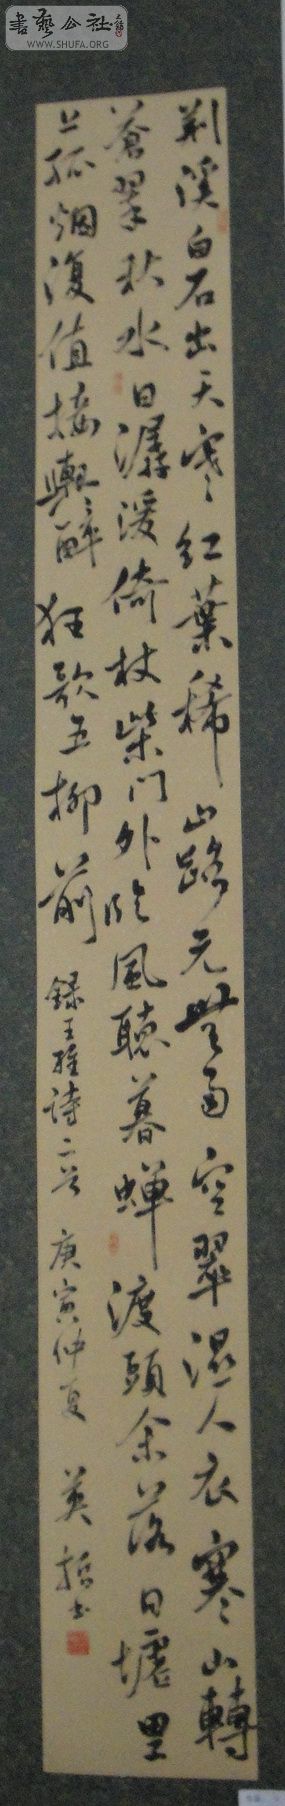 書藝公社
WWW.SHUFA.ORG
荆溪白石出天寒紅葉稀山路元無雨空翠濕人衣寒山轉
蒼翠秋水日潺湲倚杖柴门外临風聽暮蝉渡頭余落日墟里
上孤烟復值接輿醉狂歌五柳前
録王維詩二首 庚寅仲夏 英哲书